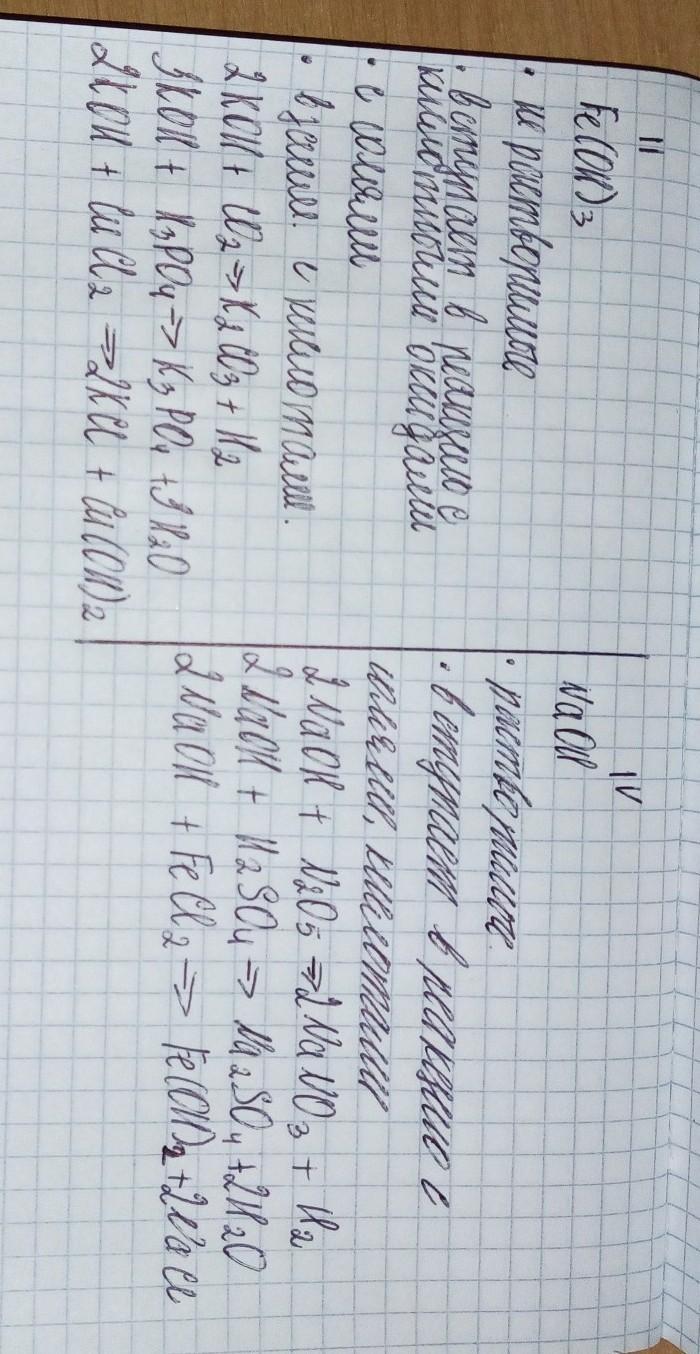 II
Fe(OH)3
• не растворимые
• вступает в реакцию с
кислотными оксидами
• с солями
• взаим. с кислотами.
2KOH + CO2 => K2CO3 + H2
3KOH + H3PO4 => K3PO4 + 3H2O
2KOH + CuCl2 => 2KCl + Cu(OH)2
IV
NaOH
• растворимые
• вступает в реакцию с
кислотами
2NaOH + N2O5 => 2NaNO3 + H2
2NaOH + H2SO4 => Na2SO4 + 2H2O
2NaOH + FeCl2 => Fe(OH)2 + 2NaCl